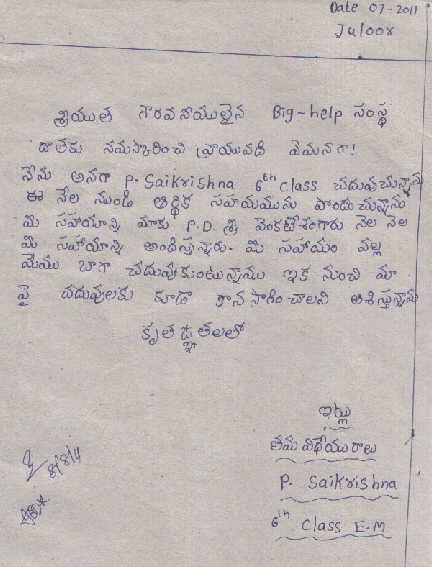 Date 07-2011
Juloor
శ్రీయుత గౌరవనీయులైన Big-help సంస్థ
దాతలకు నమస్కరించి వ్రాయునది ఏమనగా!
నేను అనగా P. Saikrishna 6th class చదువుచున్నాను
ఈ నెల నుండి ఆర్థిక సహాయమును పొందుచున్నాను
మీ సహాయాన్ని మాకు P.D. శ్రీ వెంకటేశంగారు నెల నెల
మీ సహాయాన్ని అందిస్తున్నారు. మీ సహాయం వల్ల
మేము బాగా చదువుకుంటున్నాము ఇక నుంచి మా
పై చదువులకు కూడా కొనసాగించాలని ఆశిస్తున్నాను
కృతజ్ఞతలతో
ఇట్లు
తమ విధేయురాలు
P. Saikrishna
6th Class E.M
8/8/11